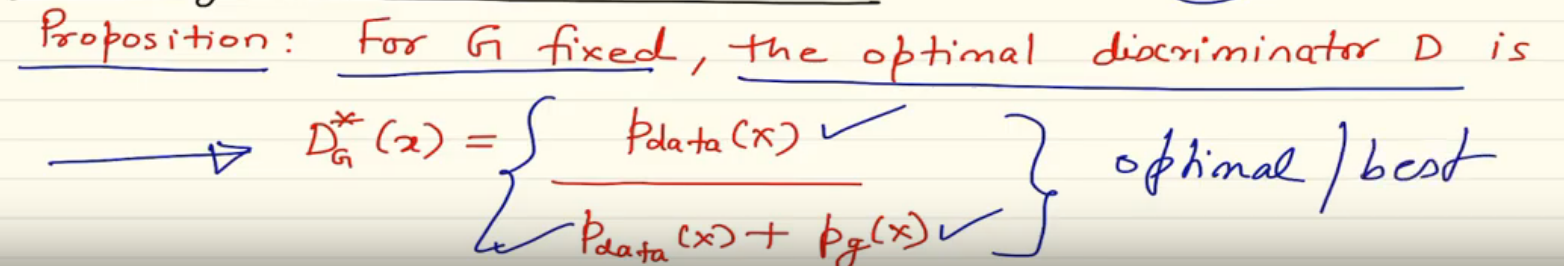 Proposition: For G fixed, the optimal discriminator D is
D*_G (x) = { p_data(x) / (p_data(x) + p_g(x)) } optimal / best